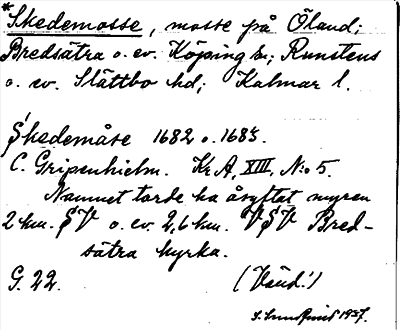 *Skedemosse, mosse på Öland;
Bredsätra o. ev. Köping sn; Runstens
o. ev. Slättbo hd; Kalmar l.
Skedemåse 1682 o. 1683.
C. Gripenhielm. Kr A, XIII, N:o 5.
Namnet torde ha åsyftat myren
2 km. SV o. ev. 2,6 km. VSV Bred-
sätra kyrka.
G. 22. (Vänd!)
1937.